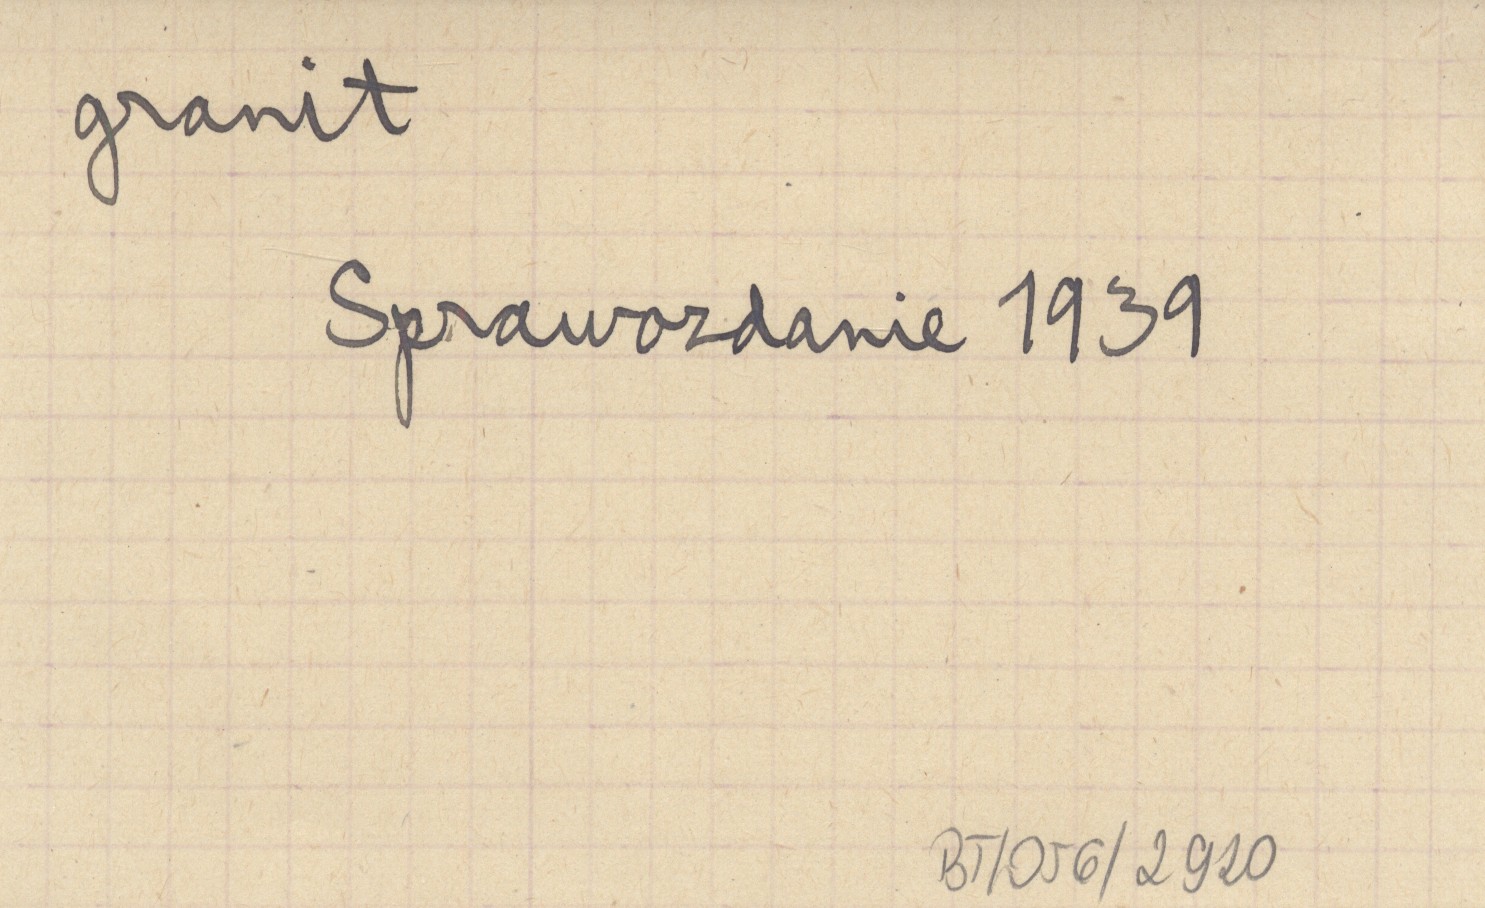 granit
Sprawozdanie 1939
BT/056/2920